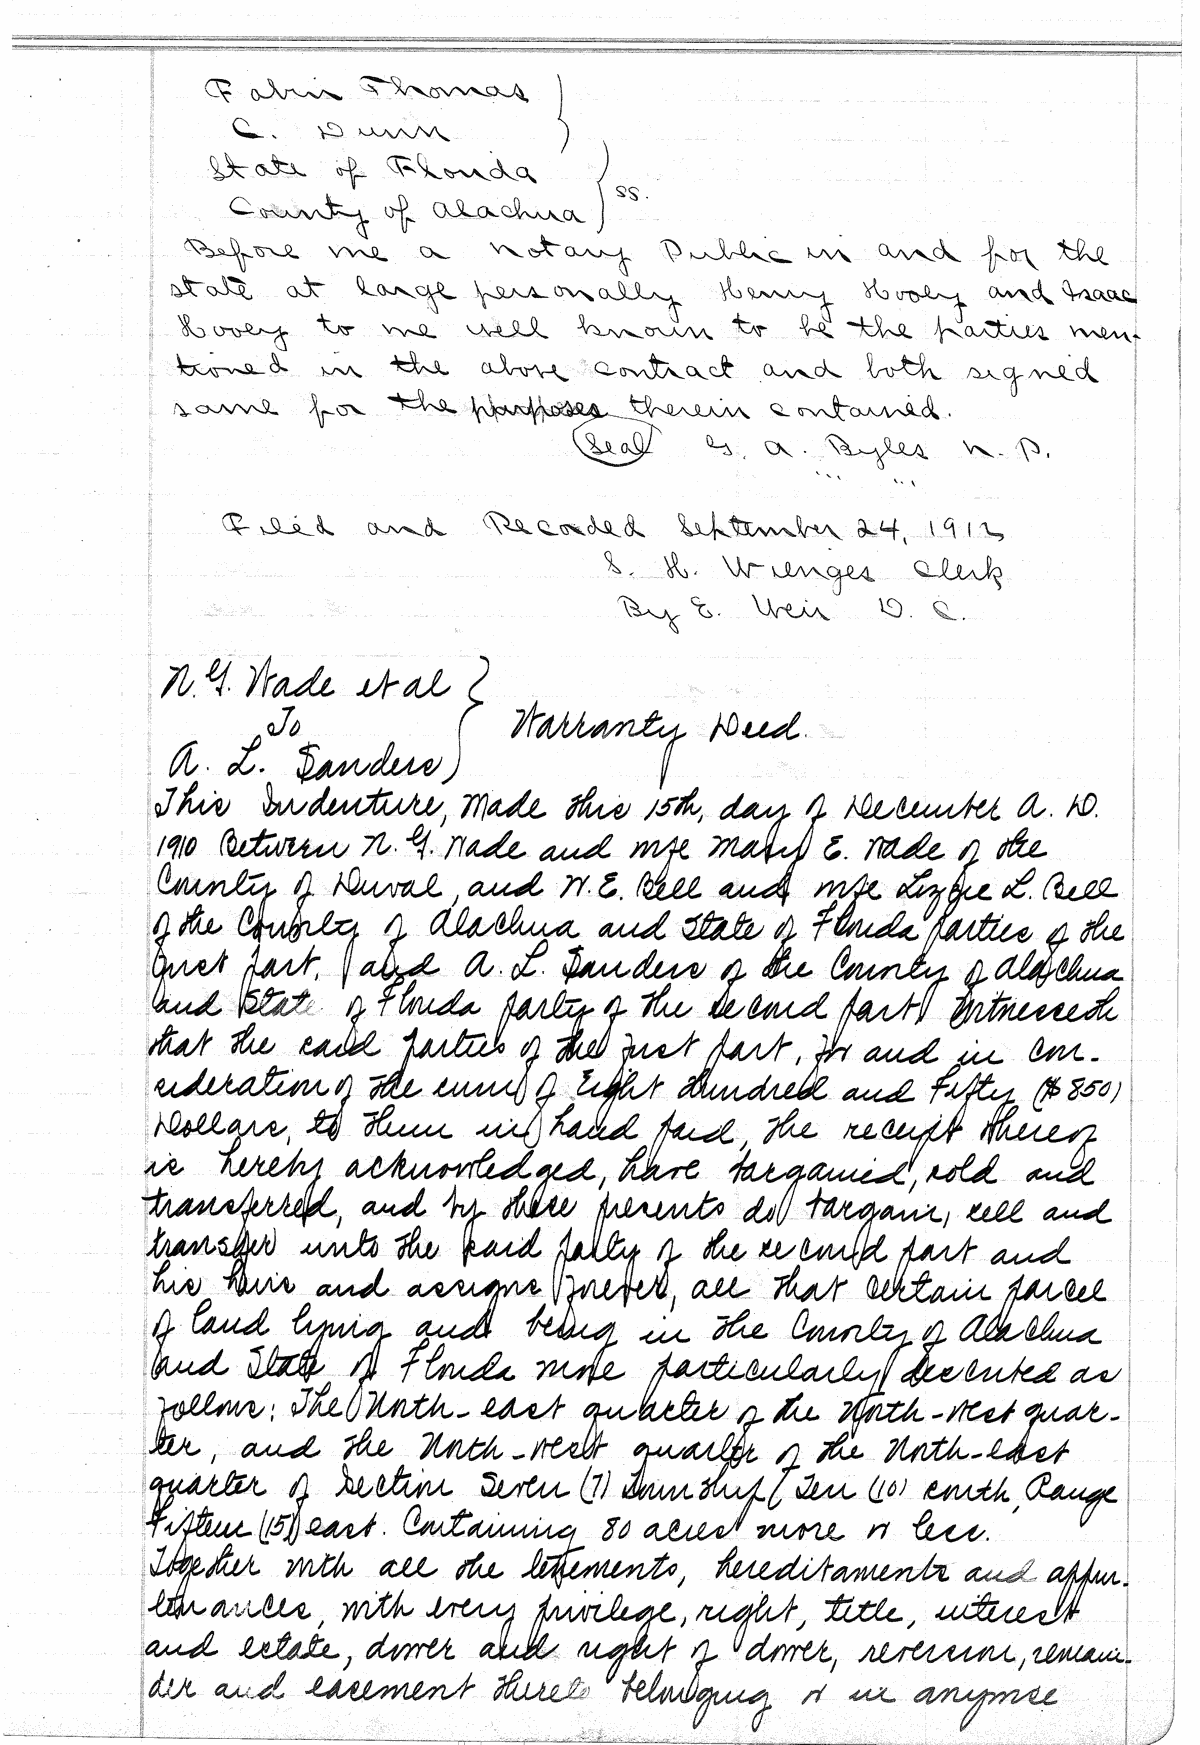 Fabin Thomas
C. Dunn
State of Florida
County of Alachua } ss.
Before me a Notary Public in and for the
state at large personally Henry Hovey and Isaac
Hovey to me well known to be the parties men-
tioned in the above contract and both signed
same for the purposes therein contained.
(Seal) G. A. Byles N. P.
Filed and Recorded September 24, 1912
S. H. Wienges Clerk
By E. Weir D. C.
N. G. Wade et al
To
Warranty Deed.
A. L. Sanders
This Indenture, Made this 15th, day of December A. D.
1910 Between N. G. Wade and wife Mary E. Wade of the
County of Duval, and W. E. Bell and wife Lizzie L. Bell
of the County of Alachua and State of Florida parties of the
first part, and A. L. Sanders of the County of Alachua
and State of Florida party of the second part, Witnesseth
that the said parties of the first part, for and in con-
sideration of the sum of Eight Hundred and Fifty ($850)
Dollars, to them in hand paid, the receipt whereof
is hereby acknowledged, have bargained, sold and
transferred, and by these presents do bargain, sell and
transfer unto the said party of the second part and
his heirs and assigns forever, all that certain parcel
of land lying and being in the County of Alachua
and State of Florida more particularly described as
follows: The North-east quarter of the North-west quar-
ter, and the North-west quarter of the North-east
quarter of Section Seven (7) Township Ten (10) south, Range
Fifteen (15) east. Containing 80 acres more or less.
Together with all the tenements, hereditaments and appur-
tenances, with every privilege, right, title, interest
and estate, dower and right of dower, reversion, remain-
der and easement thereto belonging or in anywise